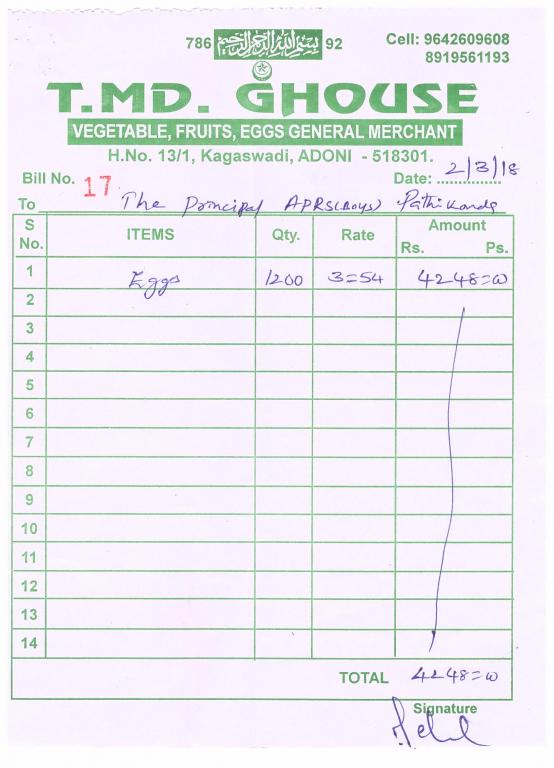 786 بسم الله الرحمن الرحيم 92
Cell: 9642609608
8919561193
T.MD. GHOUSE
VEGETABLE, FRUITS, EGGS GENERAL MERCHANT
H.No. 13/1, Kagaswadi, ADONI - 518301.
Bill No. 17 Date: 2/3/18
To The Principal APRS(Boys) Pathikonda
S No. ITEMS Qty. Rate Amount Rs. Ps.
1 Eggs 1200 3=54 4248=00
2
3
4
5
6
7
8
9
10
11
12
13
14
TOTAL 4248=00
Signature